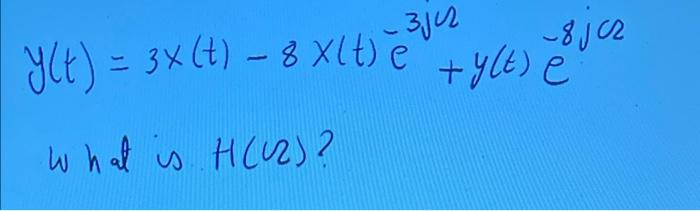 y(t) = 3x(t) - 8 x(t) e^{-3jΩ} + y(t) e^{-8jΩ}
What is H(Ω)?